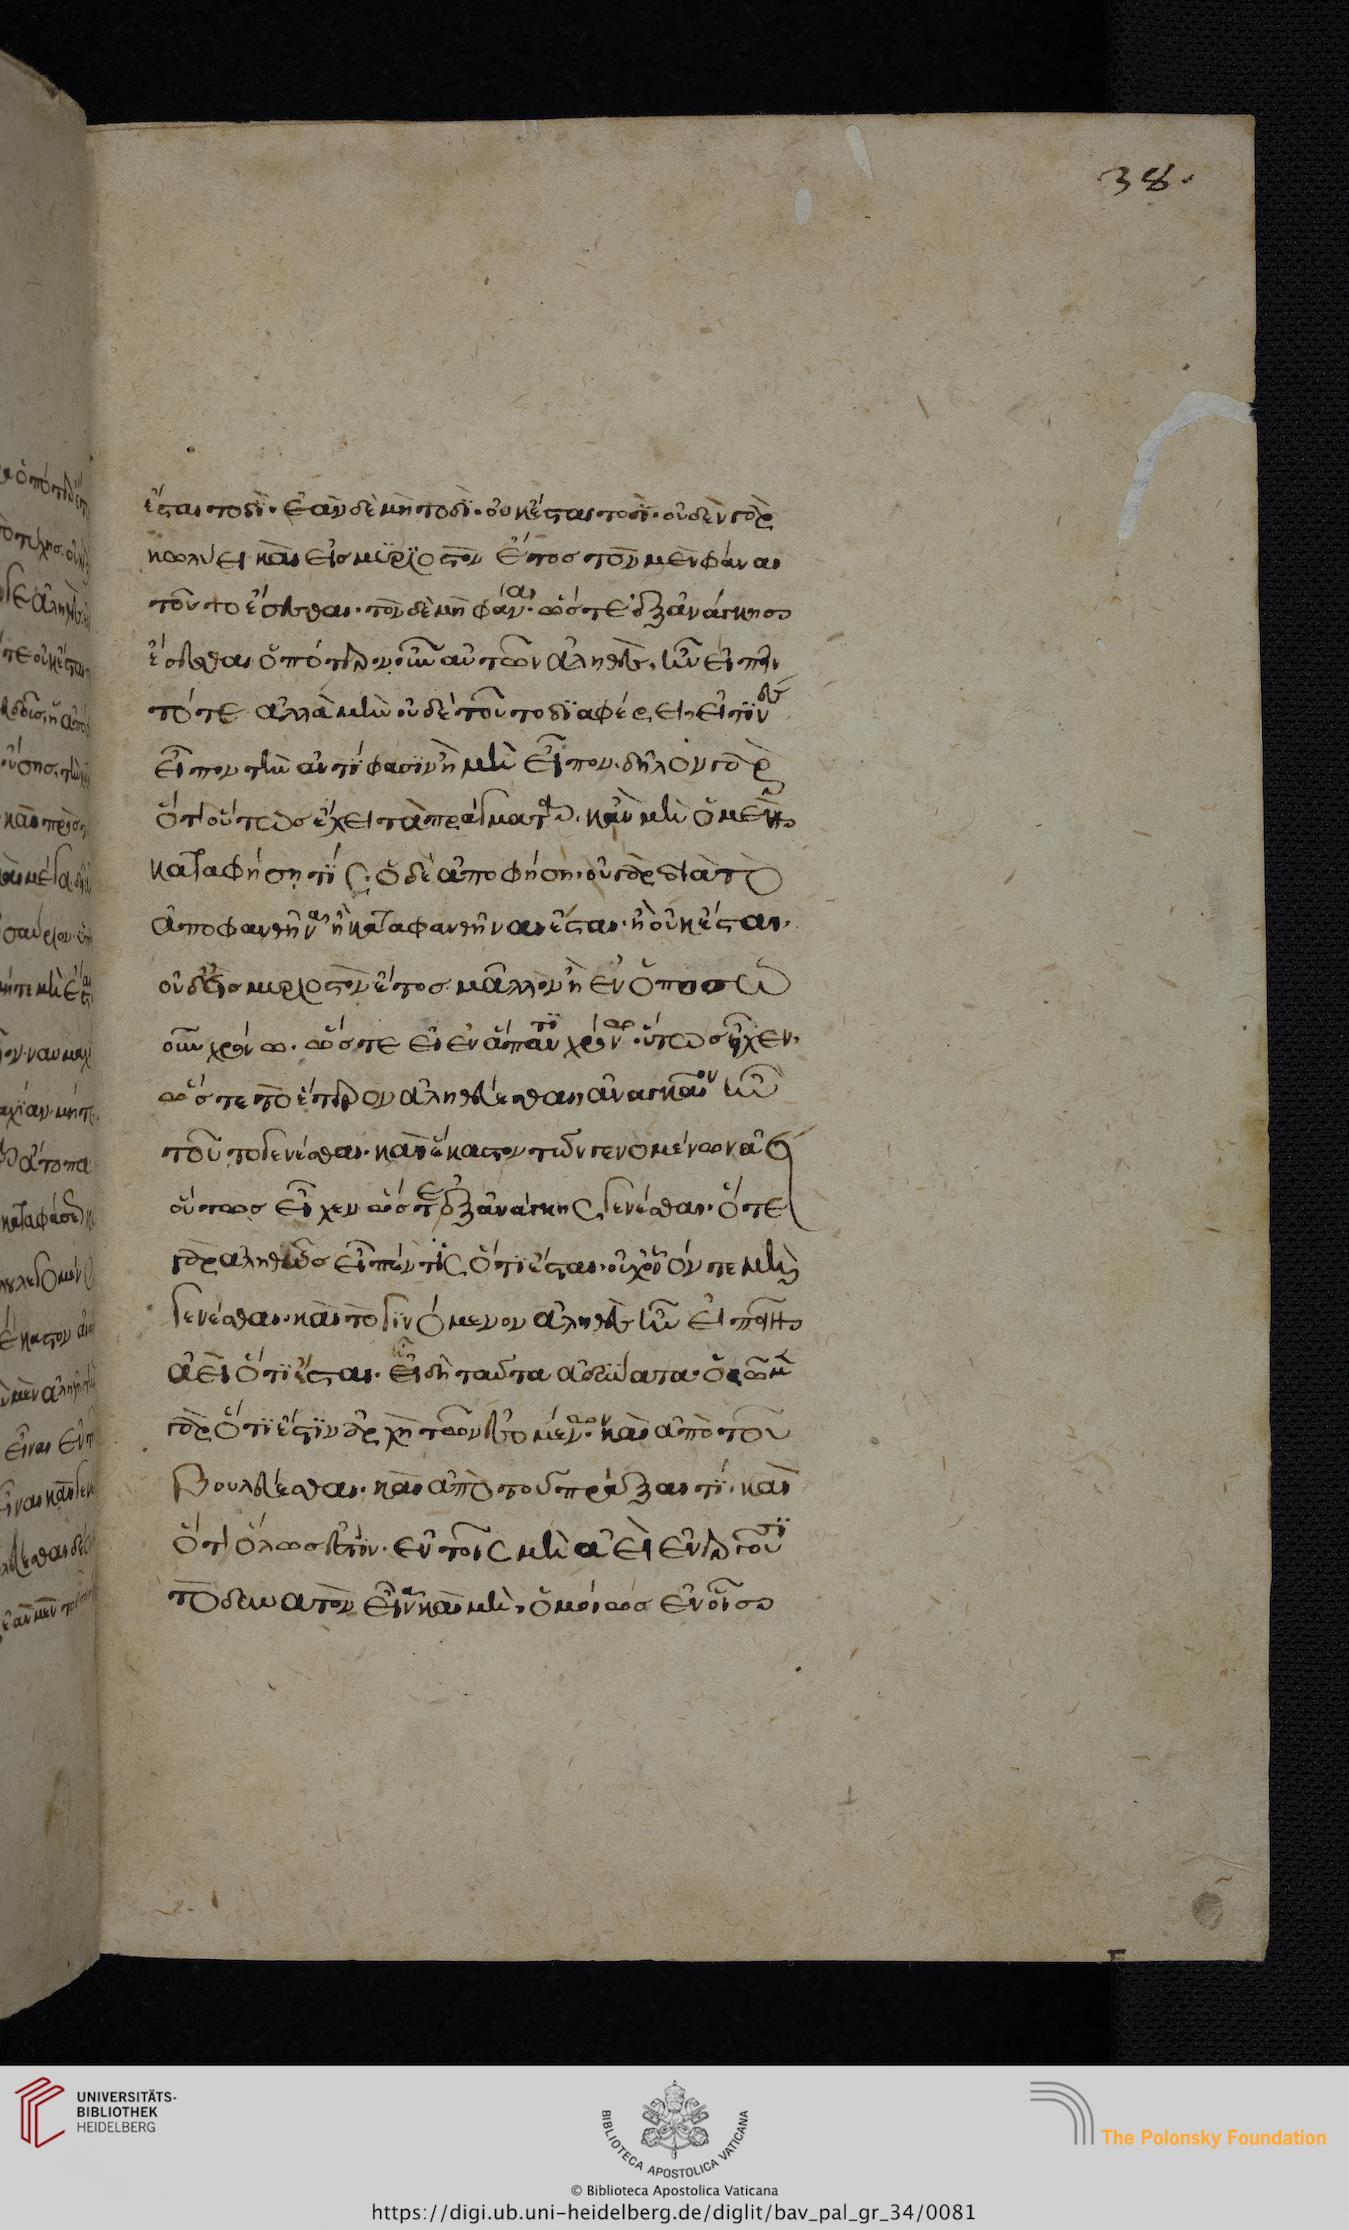 38.
ἔσται τοδί· ἐὰν δὲ μὴ τοδί· οὐκ ἔσται τοδί· οὐδὲν γὰρ
κωλύει καὶ εἰς μυριοστὸν ἔτος τὸν μὲν φάναι
τοῦτο ἔσεσθαι· τὸν δὲ μὴ φάναι· ὥστε ἐξ ἀνάγκης
ἔσεσθαι ὁπότερον οὖν αὐτῶν ἀληθὲς ἦν εἰπεῖν
τότε ἀλλὰ μὴν οὐδὲ τοῦτο διαφέρει, εἴ τινες
εἶπον τὴν ἀντίφασιν ἢ μὴ εἶπον· δῆλον γὰρ
ὅτι οὕτως ἔχει τὰ πράγματα· κἂν μὴ ὁ μὲν
καταφήσῃ τίς· ὁ δὲ ἀποφήσῃ· οὐ γὰρ διὰ τὸ
ἀποφανθῆναι ἢ καταφανθῆναι ἔσται· ἢ οὐκ ἔσται·
οὐδ' εἰς μυριοστὸν ἔτος μᾶλλον ἢ ἐν ὁποσῳ
οὖν χρόνῳ· ὥστε εἰ ἐν ἅπαντι χρόνῳ οὕτως εἶχεν·
ὥστε τὸ ἕτερον ἀληθεύεσθαι ἀναγκαῖον ἦν
τοῦτο γενέσθαι· καὶ ἕκαστον τῶν γενομένων ἀεὶ
οὕτως εἶχεν ὥστε ἐξ ἀνάγκης γενέσθαι· ὅτε
γὰρ ἀληθῶς εἶπέν τις ὅτι ἔσται· οὐχ οἷόν τε μὴ
γενέσθαι· καὶ τὸ γινόμενον ἀληθὲς ἦν εἰπεῖν
ἀεὶ ὅτι ἔσται· εἰ δὴ ταῦτα ἀδύνατα· ὁρῶμεν
γὰρ ὅτι ἔστιν ἀρχὴ τῶν ἐσομένων· καὶ ἀπὸ τοῦ
βουλεύεσθαι· καὶ ἀπὸ τοῦ πρᾶξαι τί· καὶ
ὅτι ὅλως ἐστὶν· ἐν τοῖς μὴ ἀεὶ ἐνεργοῦσι
τὸ δυνατὸν εἶναι καὶ μὴ, ὁμοίως ἐν οἷς
UNIVERSITÄTS-
BIBLIOTHEK
HEIDELBERG
BIBLIOTECA APOSTOLICA VATICANA
The Polonsky Foundation
© Biblioteca Apostolica Vaticana
https://digi.ub.uni-heidelberg.de/diglit/bav_pal_gr_34/0081